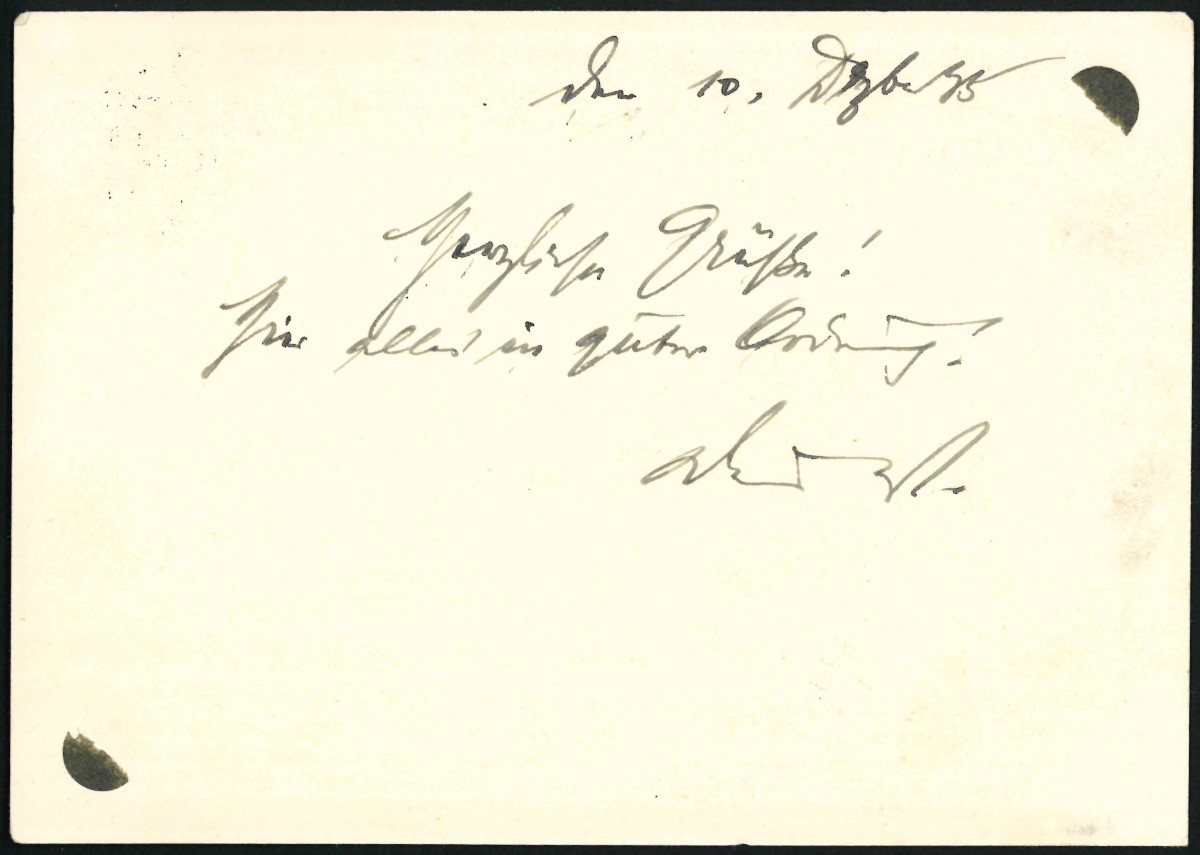 den 10. Dezbr 45
Herzliche Grüße!
Hier alles in guter Ordnung!